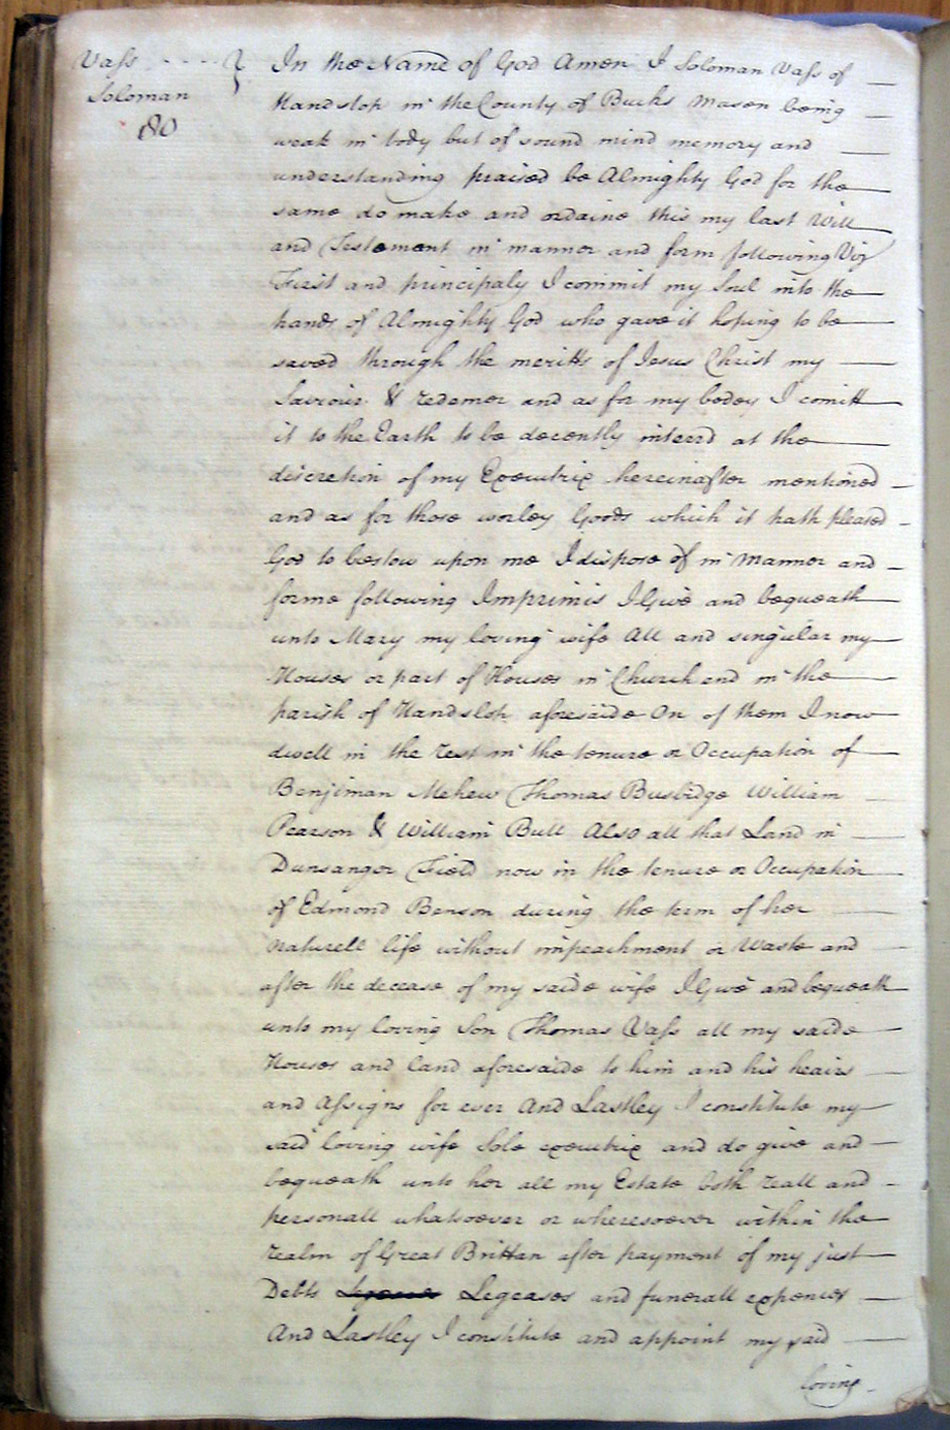 Vass
Soloman
180
In the Name of God Amen I Soloman Vass of
Handslop in the County of Bucks Mason being
weak in body but of sound mind memory and
understanding praised be Almighty God for the
same do make and ordaine this my last Will
and Testement in manner and form following Viz
First and principaly I commit my Soul into the
hands of Almighty God who gave it hoping to be
saved through the meritts of Jesus Christ my
Saviour & redemer and as for my bodey I comitt
it to the Earth to be decently interrd at the
discretion of my Executrix hereinafter mentioned
and as for those worley Goods which it hath pleased
God to bestow upon me I dispose of in Manner and
forme following Imprimis I Give and bequeath
unto Mary my loving wife All and singular my
Houses or part of Houses in Church end in the
parish of Handslop aforesaide On of them I now
dwell in the rest in the tenure or Occupation of
Benjiman Mehew Thomas Busbidge William
Pearson & William Bull Also all that Land in
Dunsanger Field now in the tenure or Occupation
of Edmond Benson during the term of her
naturell life without impeachment or Waste and
after the decease of my saide wife I Give and bequeath
unto my loving Son Thomas Vass all my saide
Houses and land aforesaide to him and his heairs
and Assigns for ever And Lastley I constitute my
said loving wife Sole executrix and do give and
bequeath unto her all my Estate both reall and
personall whatsoever or wheresoever within the
realm of Great Brittan after payment of my just
Debts Legeases and funerall expences
And Lastley I constitute and appoint my said
loving